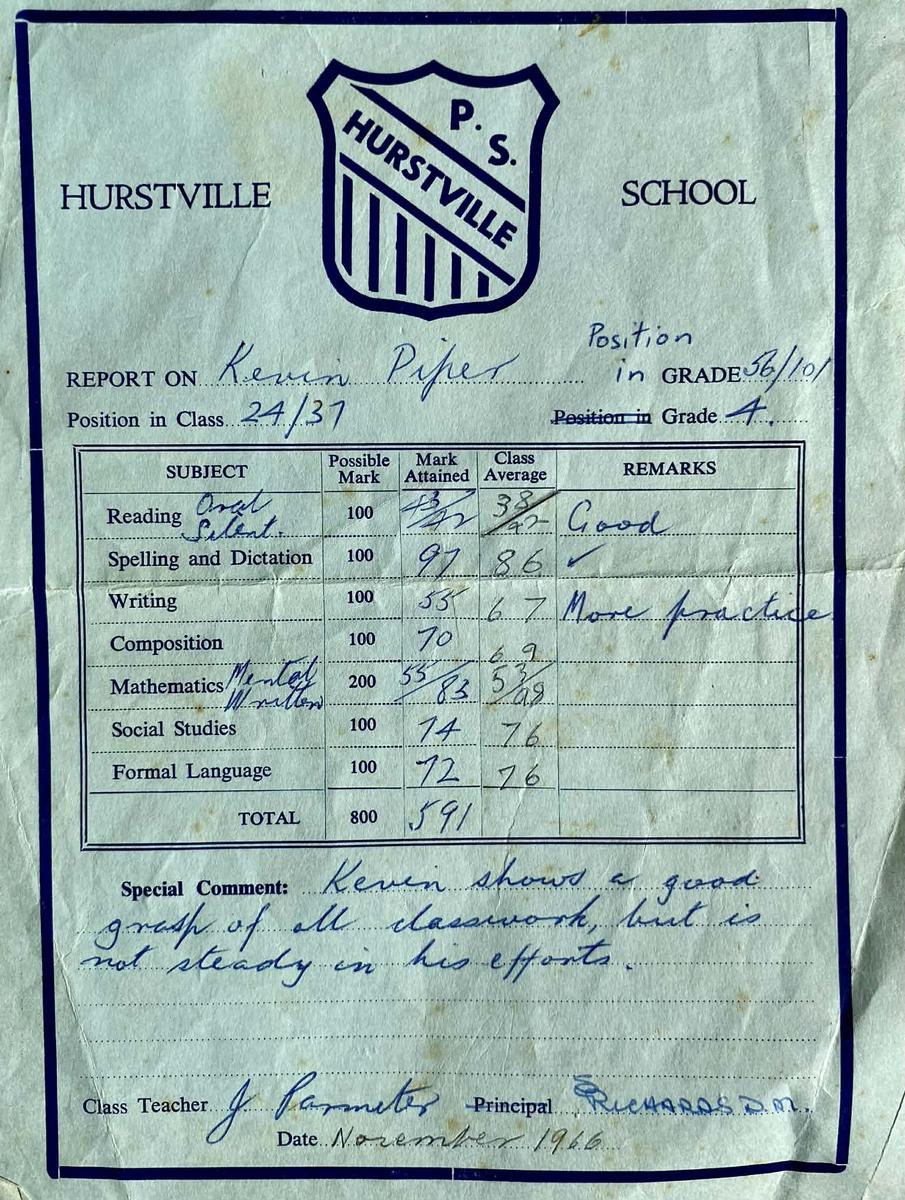 P. S.
HURSTVILLE
HURSTVILLE SCHOOL
Position
REPORT ON Kevin Piper in GRADE 56/101
Position in Class 24/37 Position in Grade 4.
SUBJECT Possible Mark Mark Attained Class Average REMARKS
Reading Oral Silent. 100 43/42 38/42 Good
Spelling and Dictation 100 97 86 ✓
Writing 100 55 67 More practice
Composition 100 70 69
Mathematics Mental Written 200 55/83 53/
Social Studies 100 74 76
Formal Language 100 72 76
TOTAL 800 591
Special Comment: Kevin shows a good
grasp of all classwork, but is
not steady in his efforts.
Class Teacher J Parmeter Principal RICHARDS D.M.
Date November 1966